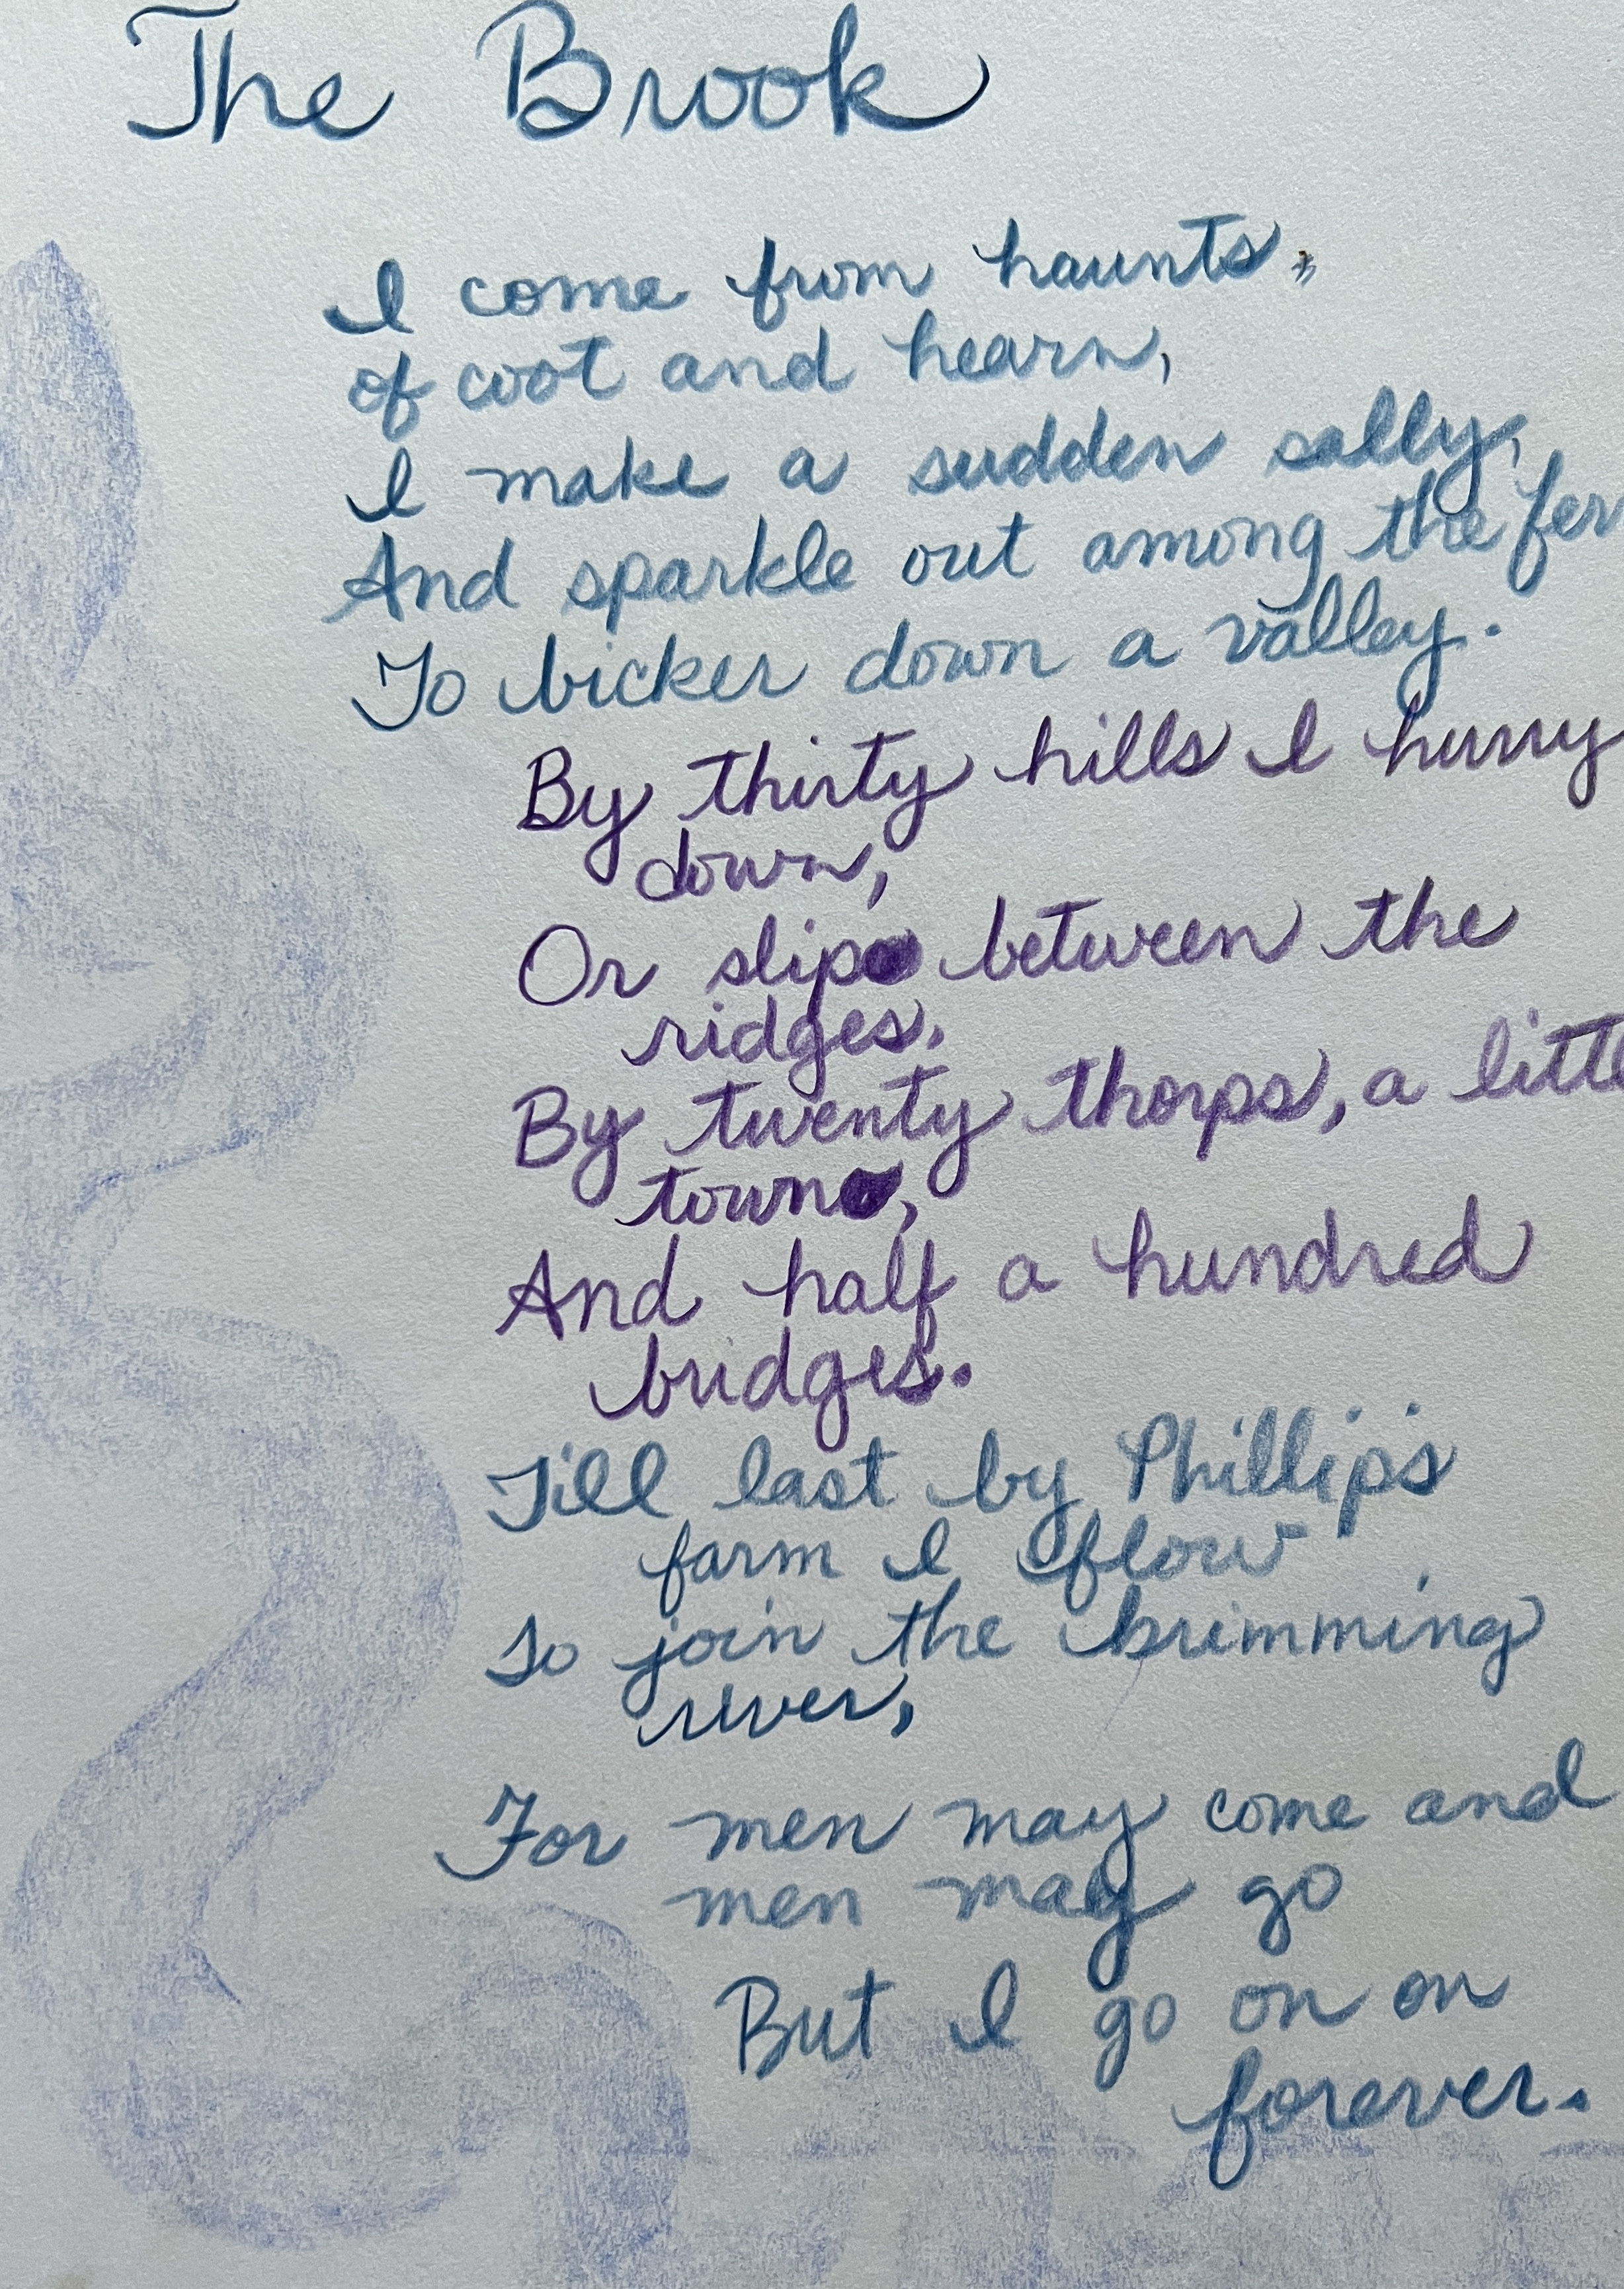 The Brook
I come from haunts,
of coot and hearn,
I make a sudden sally,
And sparkle out among the fer
To bicker down a valley.
By thirty hills I hurry
down,
Or slip between the
ridges,
By twenty thorps, a little
town,
And half a hundred
bridges.
Till last by Phillip's
farm I flow
To join the brimming
river,
For men may come and
men may go
But I go on on
forever.